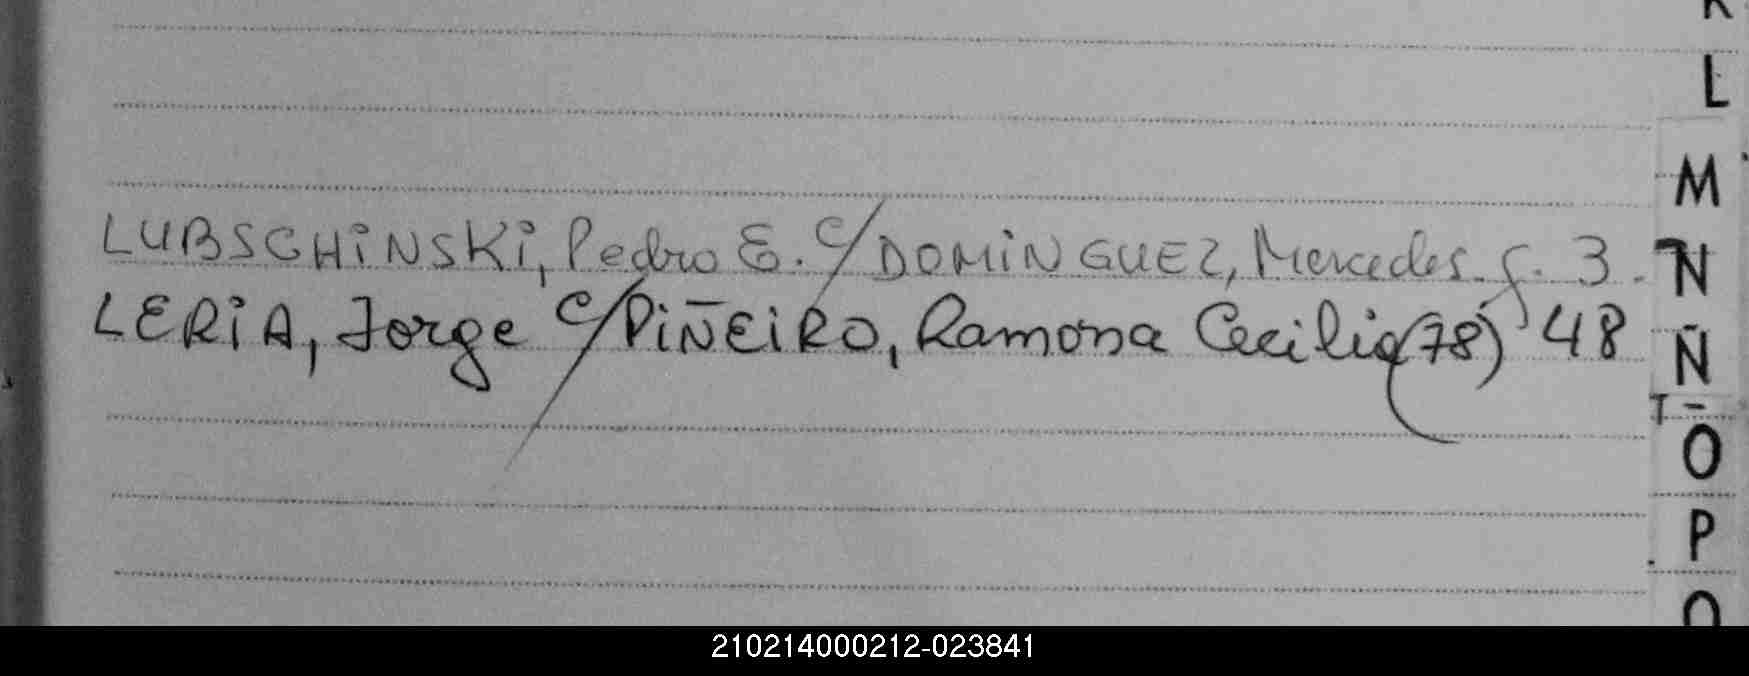 LUBSCHiNSKi, Pedro E. c/ DOMiNGUEZ, Mercedes f. 3.
LERiA, Jorge c/ PiÑEiRO, Ramona Cecilia (78) 48
K
L
M
N
Ñ
O
P
Q
210214000212-023841